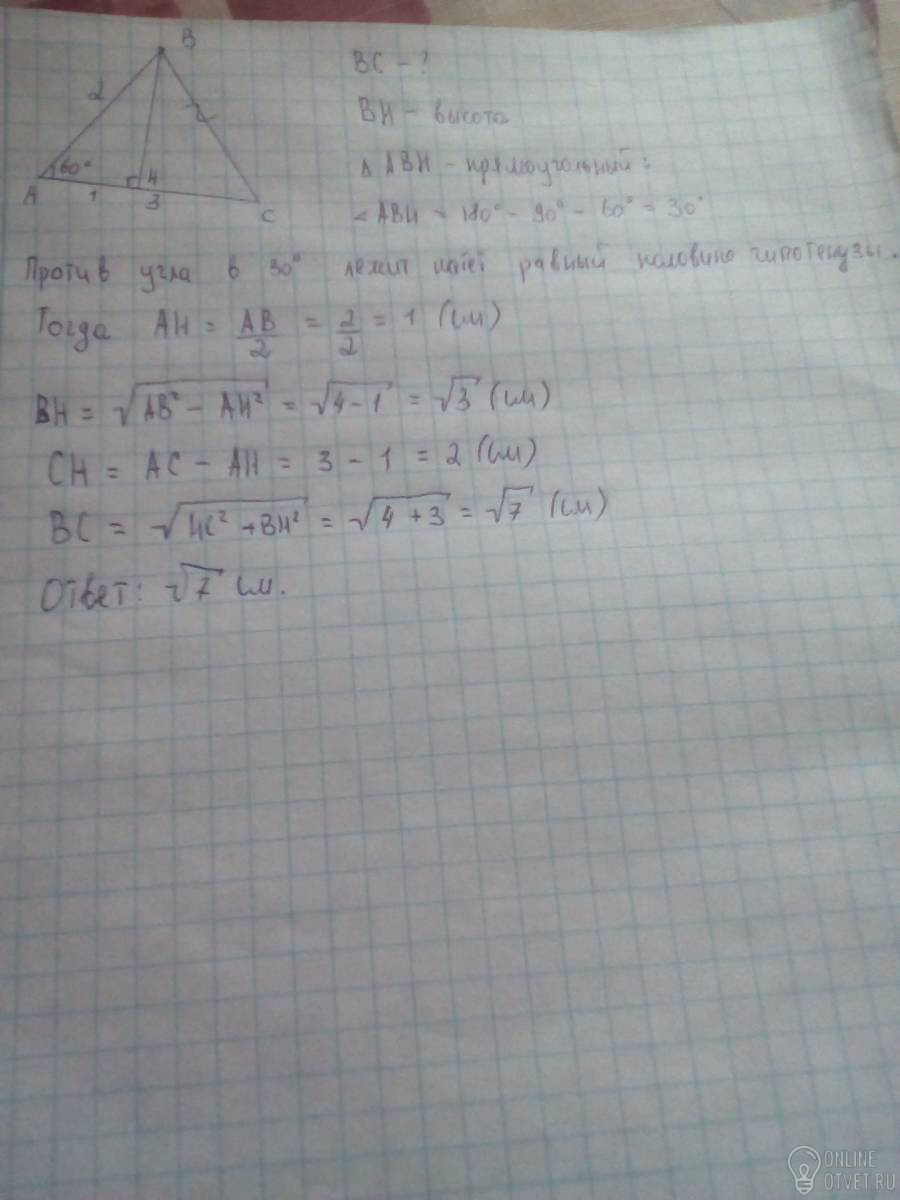 B
2
60°
A
1
3
C
BC - ?
BH - высота
△ ABH - прямоугольный:
∠ ABH = 180° - 90° - 60° = 30°
Против угла в 30° лежит катет равный половине гипотенузы.
Тогда AH = AB/2 = 2/2 = 1 (см)
BH = √(AB² - AH²) = √(4-1) = √3 (см)
CH = AC - AH = 3 - 1 = 2 (см)
BC = √(HC² + BH²) = √(4 + 3) = √7 (см)
Ответ: √7 см.
ONLINE
OTVET.RU